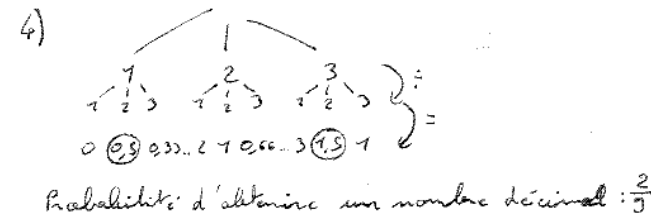 4)
1 2 3
1 2 3 1 2 3 1 2 3 ÷
0 0,5 0,33.. 2 1 0,66.. 3 1,5 1 =
Probabilité d'obtenire un nombre décimal : 2/9